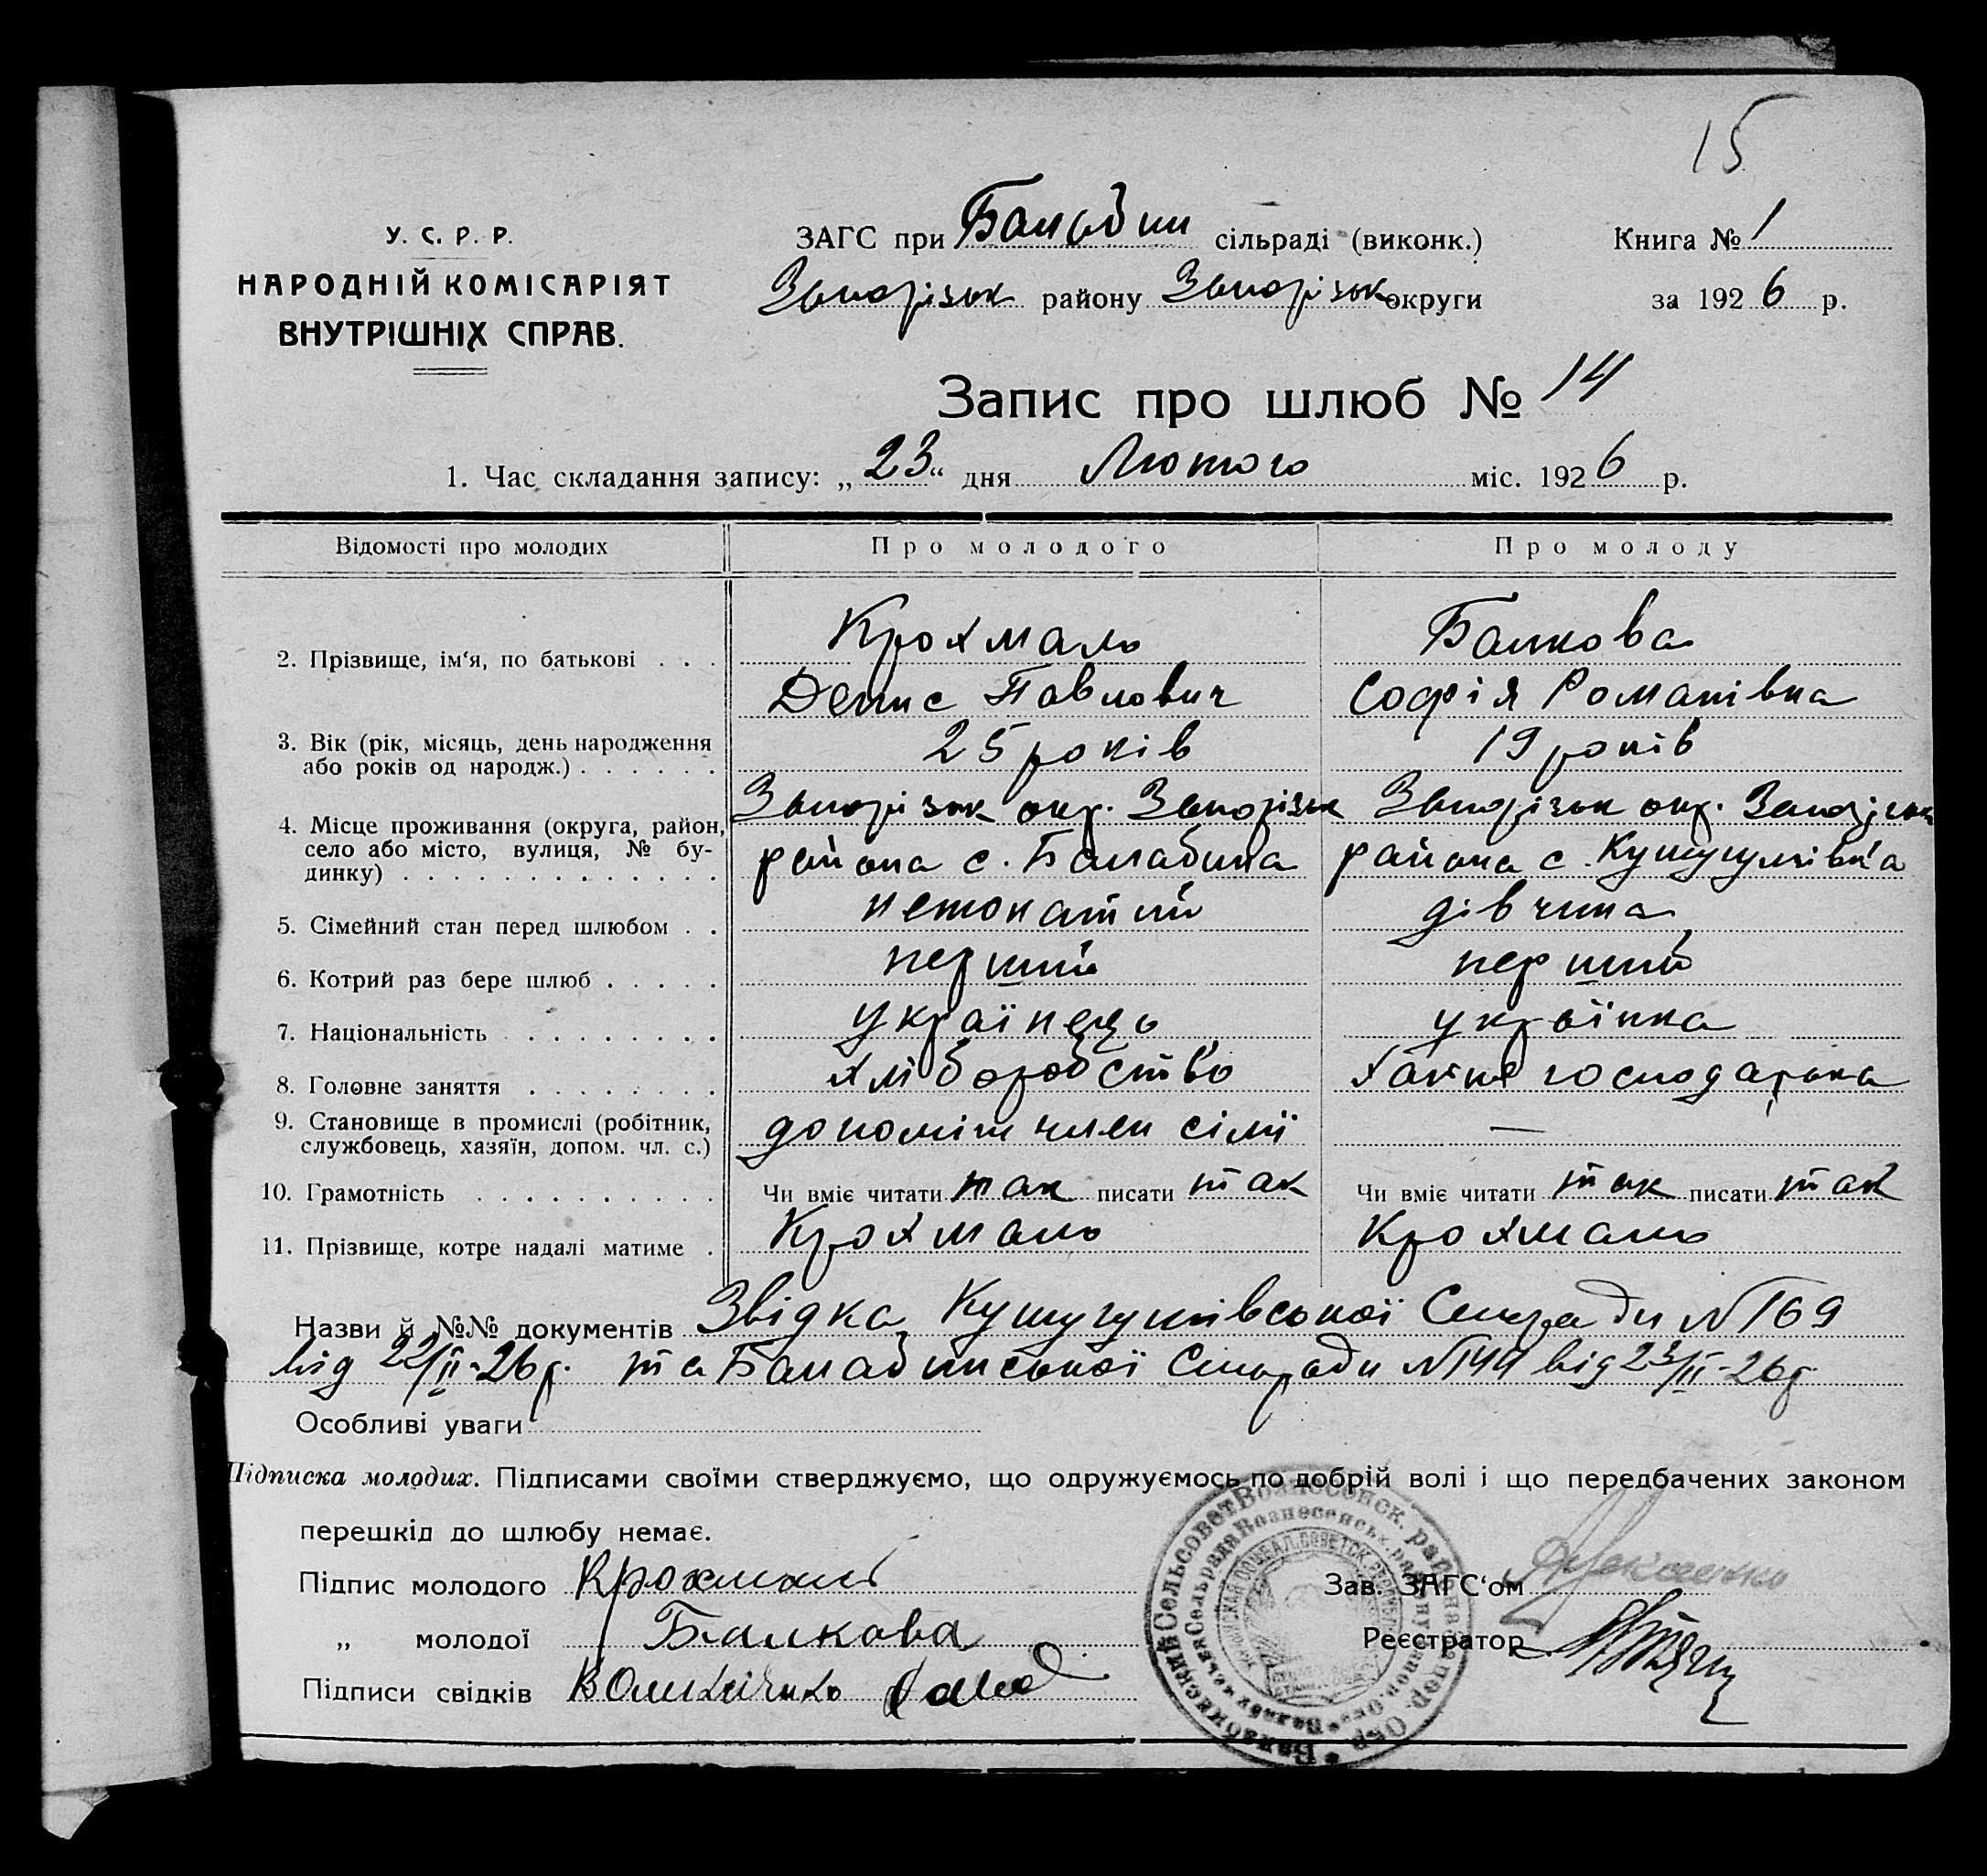 15
У. С. Р. Р.
НАРОДНІЙ КОМІСАРІЯТ
ВНУТРІШНІХ СПРАВ.
ЗАГС при Балабин сільраді (виконк.)
Запорізьк району Запорізьк округи
Книга № 1
за 1926 р.
Запис про шлюб № 14
1. Час складання запису: „23“ дня Лютого міс. 1926 р.
Відомості про молодих Про молодого Про молоду
2. Прізвище, ім‘я, по батькові . . . Крохмаль Балкова
Денис Павлович Софія Романівна
3. Вік (рік, місяць, день народження
або років од народж.) . . . . . . 25 років 19 років
Запорізьк окр. Запорізьк Запорізьк окр. Запорізьк
4. Місце проживання (округа, район,
село або місто, вулиця, № бу-
динку) . . . . . . . . . . . . . района с. Балабина района с. Кушугумівка
5. Сімейний стан перед шлюбом . . нежонатий дівчина
6. Котрий раз бере шлюб . . . . . перший перший
7. Національність . . . . . . . . українець українка
8. Головне заняття . . . . . . . . хліборобство хатня господарка
9. Становище в промислі (робітник,
службовець, хазяїн, допом. чл. с.) допоміж член сімї —
10. Грамотність . . . . . . . . . . Чи вміє читати так писати так Чи вміє читати так писати так
11. Прізвище, котре надалі матиме . Крохмаль Крохмаль
Назви й №№ документів Звідка Кушугумівської Сілради N 169
від 22/II-26р. та Балабинської Сілради N 144 від 23/II-26р
Особливі уваги
Підписка молодих. Підписами своїми стверджуємо, що одружуємось по добрій волі і що передбачених законом
перешкід до шлюбу немає.
Підпис молодого Крохмаль
„ молодої Балкова
Підписи свідків
Зав. ЗАГС‘ом
Реєстратор